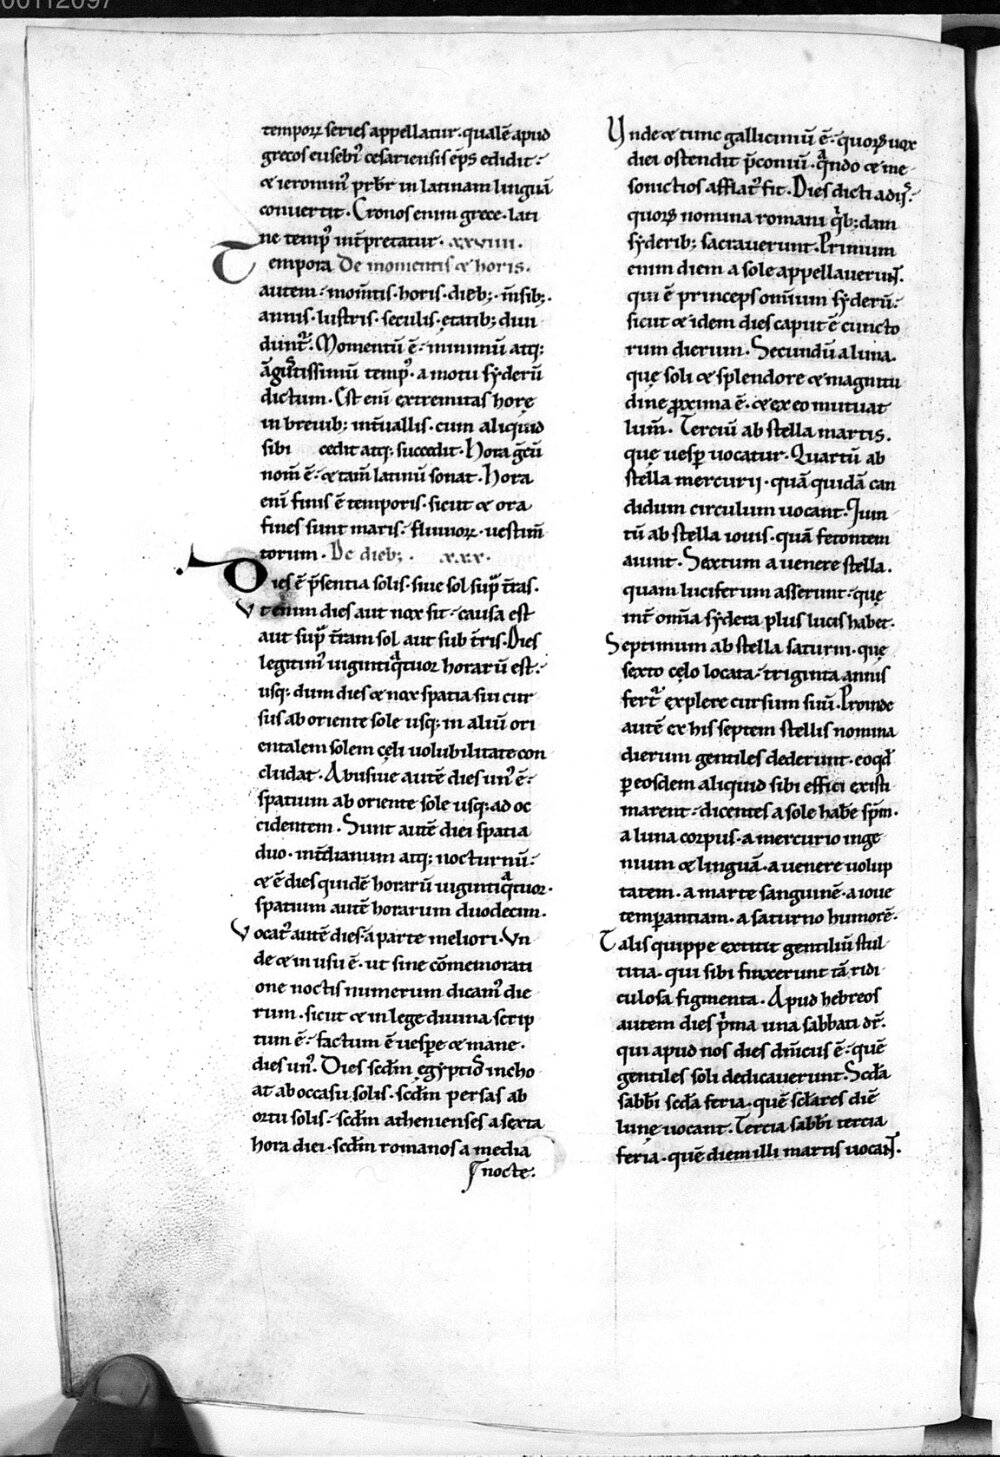 00112097
temporꝝ series appellatur. qualē apud
grecos eusebiꝰ cesariensis ep̄s edidit.
⁊ ieronimꝰ prb̄r in latinam linguā
conuertit. Cronos enim grece. lati
ne tempꝰ int̄pretatur. xxviiii.
Tempora De momentis ⁊ horis.
autem. mom̄tis. horis. dieb;. m̄sib;.
annis. lustris. seculis. ętatib; diui
dunt᷑. Momentū ē. minimū atq:
āgustissimū tempꝰ. a motu syderū
dictum. Est eni extremitas horę
in breuib; int̄uallis. cum aliquid
sibi cedit atq; succedit. Hora grecū
nom̄ ē. ⁊ tam̄ latinū sonat. Hora
eni finis ē temporis. sicut ⁊ ora
fines sunt maris. fluuiorꝝ. uestim̄
torum. De dieb;. xxx.
Dies ē p̄sentia solis. siue sol sup̄ t̄ras.
Vt enim dies aut nox fit. causa est
aut sup̄ t̄ram sol aut sub t̄ris. Dies
legitimꝰ uigintiqͣtuor horarū est.
usq; dum dies ⁊ nox spatia sui cur
sus ab oriente sole usq; in aliū ori
entalem solem cęli uolubilitate con
cludat. Abusiue autē dies unꝰ ē.
spatium ab oriente sole usq; ad oc
cidentem. Sunt autē diei spatia
duo. int̄dianum atq; nocturnū.
⁊ ē dies quidē horarū uigintiqͣtuor.
spatium autē horarum duodecim.
Vocat᷑ autē dies. a parte meliori. Vn
de ⁊ in usu ē. ut sine cōmemorati
one noctis numerum dicamꝰ die
rum. sicut ⁊ in lege diuina scrip
tum ē. factum ē uesp̱e ⁊ mane.
dies unꝰ. Dies scd̄m ęgyptios incho
at ab occasu solis. scd̄m persas ab
ortu solis. scd̄m athenienses a sexta
hora diei. scd̄m romanos a media
nocte.
Vnde ⁊ tunc galliciniū ē. quorꝝ uox
diei ostendit p̄coniū. qͣndo ⁊ me
sonictios afflatꝰ fit. Dies dicti a diis.
quorꝝ nomina romani qͥb;dam
syderib; sacrauerunt. Primum
enim diem a sole appellauerunt.
qui ē princeps omīum syderū.
sicut ⁊ idem dies caput ē cuncto
rum dierum. Secundū a luna.
quę soli ⁊ splendore ⁊ magnitu
dine ꝓxima ē. ⁊ ex eo mutuat
lum̄. Terciū ab stella martis.
quę uesp̱ uocatur. Quartū ab
stella mercurij. quā quidā can
didum circulum uocant. Quin
tū ab stella iouis. quā fetontem
aiunt. Sextum a uenere stella.
quam luciferum asserunt. quę
int̄ omīa sydera plus lucis habet.
Septimum ab stella saturni. quę
sexto cęlo locata. triginta annis
fert᷑ explere cursum suū. Proinde
autē ex his septem stellis nomina
dierum gentiles dederunt. eo qd̄
p̱ eosdem aliquid sibi effici existi
marent. dicentes a sole habe sp̄m.
a luna corpus. a mercurio inge
nium ⁊ linguā. a uenere uolup
tatem. a marte sanguinē. a ioue
temp̱antiam. a saturno humorē.
Talis quippe extitit gentiliū stul
titia. qui sibi finxerunt tā ridi
culosa figmenta. Apud hebreos
autem dies pͥma una sabbati dr̄.
qui apud nos dies dn̄icus ē. quē
gentiles soli dedicauerunt. Scd̄a
sabb̄i scd̄a feria. quē sclares diē
lunę uocant. Tercia sabb̄i tercia
feria. quē diem illi martis uocant.